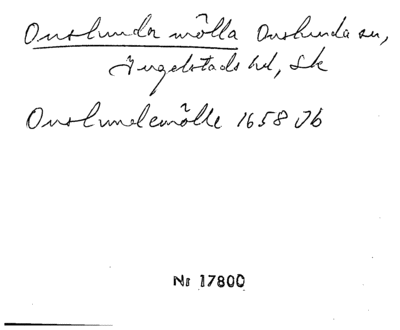 Onslunda mölla Onslunda sn,
Ingelstads hd, Sk
Onslundemölle 1658 Jb
Nr 17800